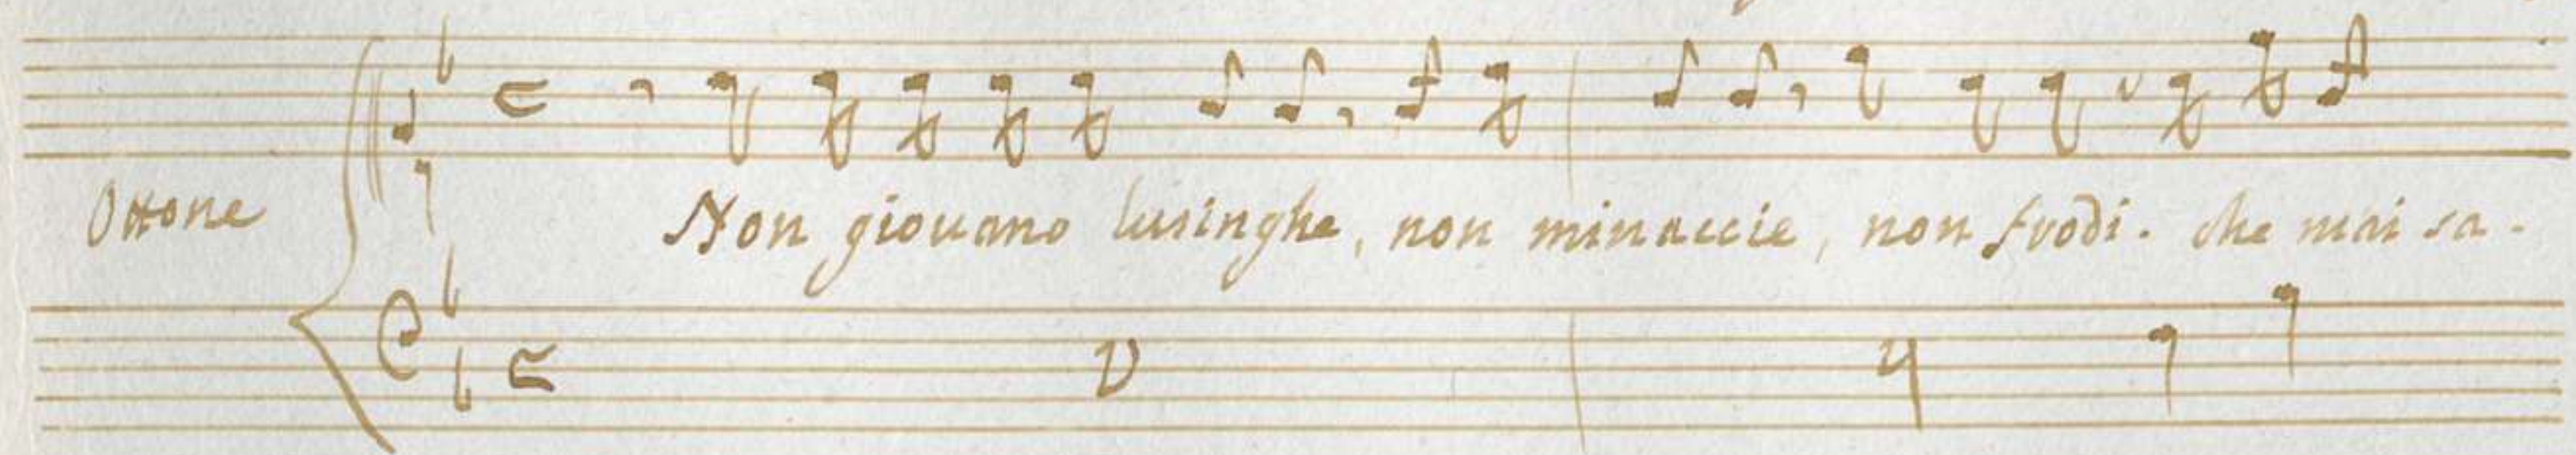 Ottone Non giouano lusinghe, non minaccie, non frodi. che mai sa-